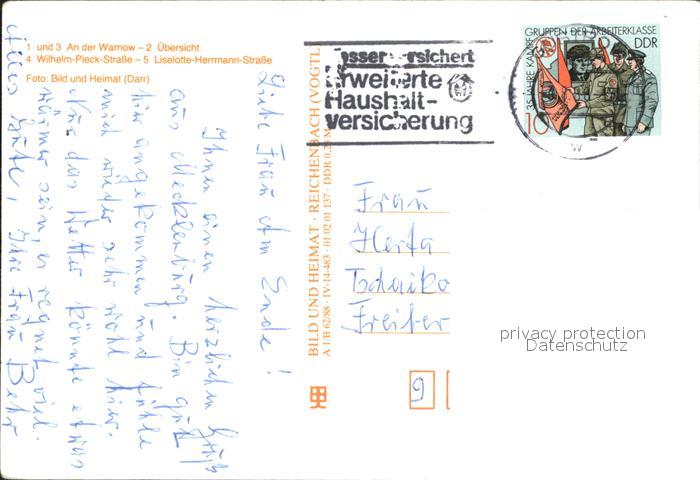 1 und 3 An der Warnow – 2 Übersicht
4 Wilhelm-Pieck-Straße – 5 Liselotte-Herrmann-Straße
Foto: Bild und Heimat (Darr)
Liebe Frau am Ende!
Ihnen einen herzlichen Gruß
aus Mecklenburg. Bin gut
hier angekommen und fühle
mich wieder sehr wohl hier.
Nur das Wetter könnte etwas
wärmer sein, es regnet viel.
Alles Gute, Ihre Frau Behr
BILD UND HEIMAT · REICHENBACH (VOGTL
A 1/B 62/88 · IV-14-483 · 01 02 01 137 · DDR 0,25 M
besser versichert
Erweiterte
Haushalt-
versicherung
35 JAHRE KAMPFGRUPPEN DER ARBEITERKLASSE
DDR
10
W
Frau
Herta
Freiber
9
privacy protection
Datenschutz